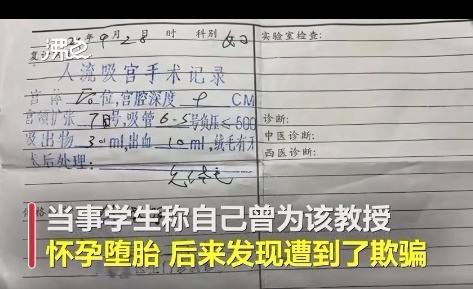 沸点
年9月28日 时 科别 妇
实验室检查:
人流吸宫手术记录
宫体 位,宫腔深度 9 CM
宫颈扩张 7 号,吸管 6-5 号负压≤500
诊断:
吸出物 30ml,出血 10ml,绒毛有
中医诊断:
术后处理:
西医诊断:
当事学生称自己曾为该教授
怀孕堕胎 后来发现遭到了欺骗